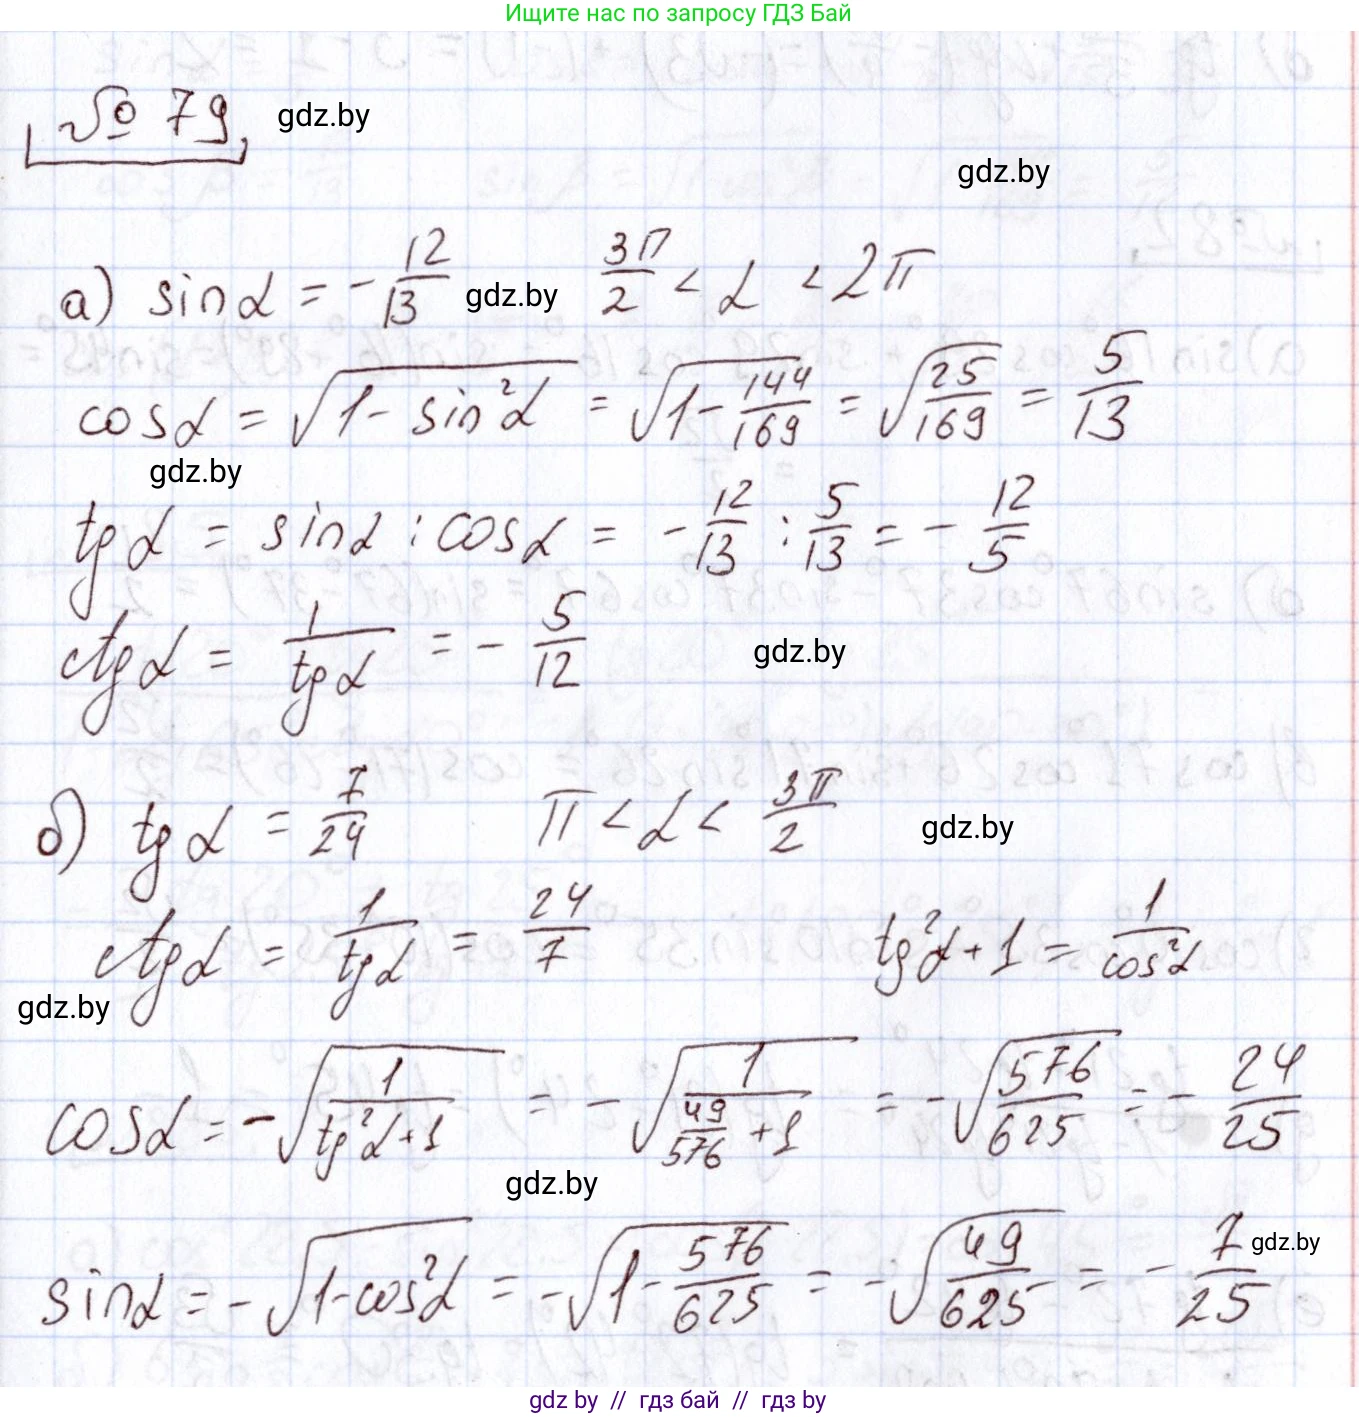 Ищите нас по запросу ГДЗ Бай
№ 79, gdz.by
gdz.by
а) sinα = -12/13 gdz.by 3π/2 < α < 2π
cosα = √(1 - sin²α) = √(1 - 144/169) = √(25/169) = 5/13
gdz.by
tgα = sinα : cosα = -12/13 : 5/13 = -12/5
ctgα = 1/tgα = -5/12 gdz.by
б) tgα = 7/24 π < α < 3π/2 gdz.by
ctgα = 1/tgα = 24/7 tg²α + 1 = 1/cos²α
gdz.by
cosα = -√(1/(tg²α + 1)) = -√(1/(49/576 + 1)) = -√(576/625) = -24/25
gdz.by
sinα = -√(1 - cos²α) = -√(1 - 576/625) = -√(49/625) = -7/25 gdz.by
gdz by // гдз бай // гдз by